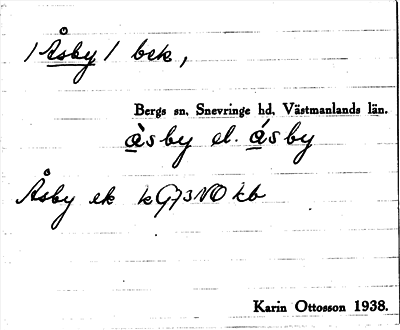 /Åsby/ bek,
Bergs sn, Snevringe hd, Västmanlands län.
àsby el. ásby
Åsby ek kG73NO kb
Karin Ottosson 1938.